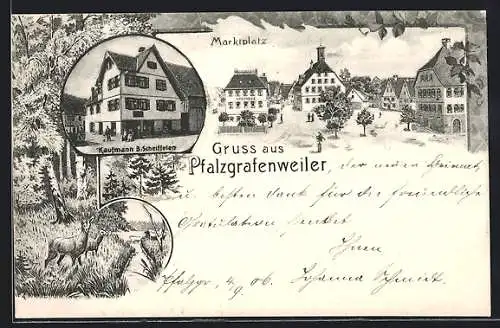 Marktplatz
Kaufmann B. Scheiffelen
Gruss aus
Pfalzgrafenweiler, der neuen Heimat,
u. besten Dank für die freundliche
Gratulation sendet
Ihnen
Pfalzgr. 4/9 06. Johanna Schmidt.